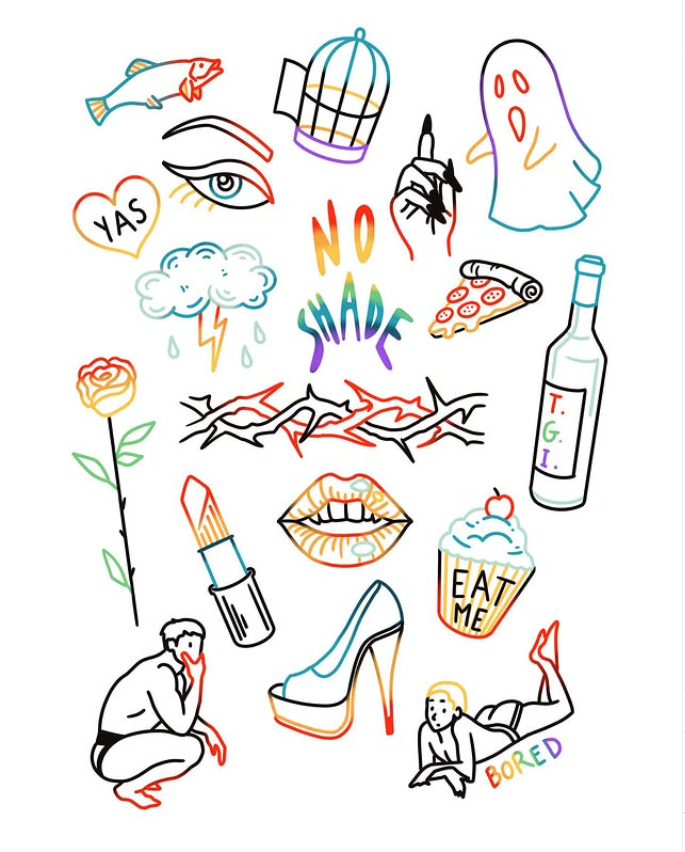 YAS
NO
SHADE
T.
G.
I.
EAT
ME
BORED